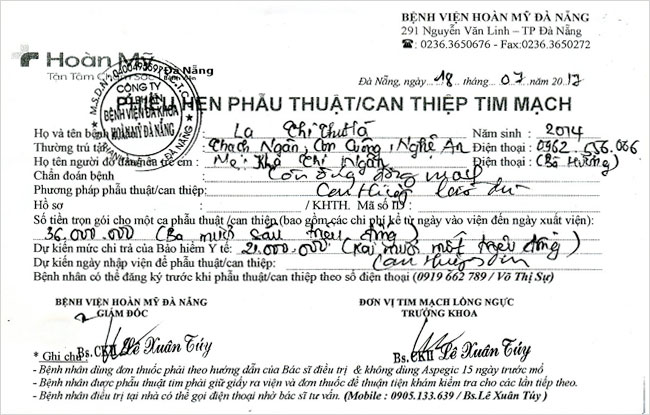 BỆNH VIỆN HOÀN MỸ ĐÀ NẴNG
291 Nguyễn Văn Linh – TP Đà Nẵng
☎: 0236.3650676 - Fax:0236.3650272
Hoàn Mỹ
Đà Nẵng
Tận Tâm Chăm Sóc
CÔNG TY
CỔ PHẦN
BỆNH VIỆN ĐA KHOA
HOÀN MỸ ĐÀ NẴNG
Đà Nẵng, ngày 18 tháng 07 năm 2017
PHIẾU HẸN PHẪU THUẬT/CAN THIỆP TIM MẠCH
Họ và tên bệnh La Thị Thu Hà Năm sinh : 2014
Thường trú tại: Thạch Ngàn, Con Cuông, Nghệ An Điện thoại : 0962 656 066
Họ tên người đỡ em : Mẹ: Kha Thị Ngân Điện thoại : (Bố Hương)
Chẩn đoán bệnh : Còn ống động mạch
Phương pháp phẫu thuật/can thiệp: Can thiệp
Hồ sơ : / KHTH. Mã số
Số tiền trọn gói cho một ca phẫu thuật /can thiệp (bao gồm các chi phí kể từ ngày vào viện đến ngày xuất viện):
36.000.000 (Ba mươi sáu triệu đồng)
Dự kiến mức chi trả của Bảo hiểm Y tế: 21.000.000 (Hai mươi một triệu đồng)
Dự kiến ngày nhập viện để phẫu thuật/can thiệp:
Bệnh nhân có thể đăng ký trước khi phẫu thuật/can thiệp theo số điện thoại (0919 662 789 / Võ Thị Sự)
BỆNH VIỆN HOÀN MỸ ĐÀ NẴNG ĐƠN VỊ TIM MẠCH LỒNG NGỰC
GIÁM ĐỐC TRƯỞNG KHOA
Bs.CKII Lê Xuân Túy Bs.CKII Lê Xuân Túy
* Ghi chú :
- Bệnh nhân dùng đơn thuốc phải theo hướng dẫn của Bác sĩ điều trị & không dùng Aspegic 15 ngày trước mổ
- Bệnh nhân được phẫu thuật tim phải giữ giấy ra viện và đơn thuốc để thuận tiện khám kiểm tra cho các lần tiếp theo.
- Bệnh nhân điều trị tại nhà có thể gọi điện thoại nhờ bác sĩ tư vấn. (Mobile : 0905.133.639 / Bs.Lê Xuân Túy )